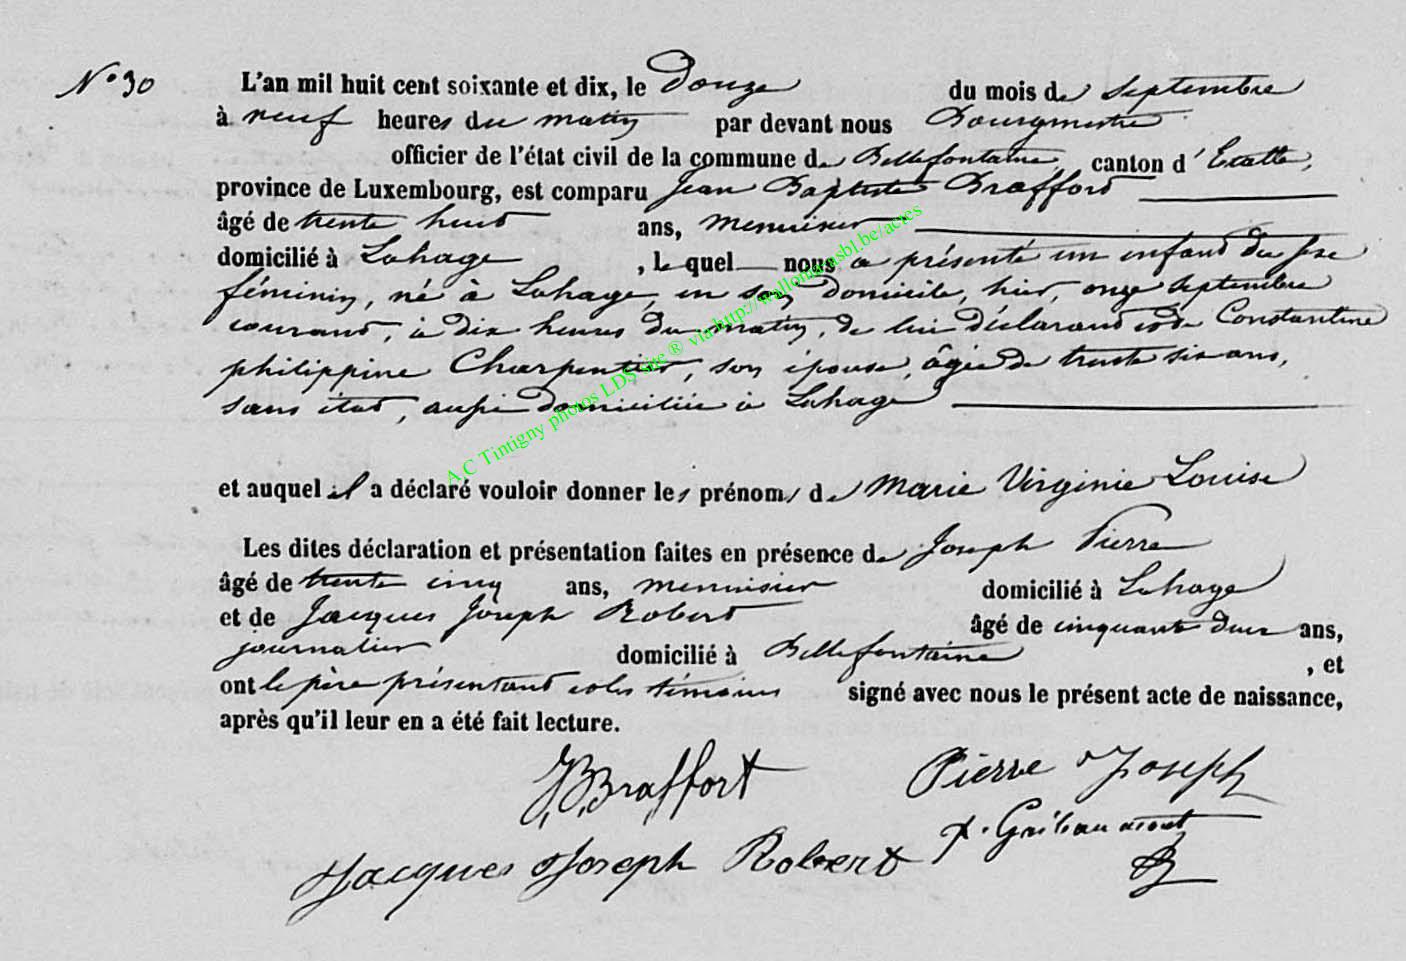 N° 30
L'an mil huit cent soixante et dix, le Douze du mois de Septembre
à neuf heures du matin par devant nous Bourgmestre
officier de l'état civil de la commune de Bellefontaine canton d'Etalle,
province de Luxembourg, est comparu Jean Baptiste Braffort
âgé de trente huit ans, menuisier
domicilié à Lahage , lequel nous a présenté un enfant du sexe
féminin, né à Lahage, en son domicile, hier, onze Septembre
courant, à dix heures du matin, de lui déclarant et de Constantine
philippine Charpentier, son épouse, âgée de trente six ans,
sans état, aussi domiciliée à Lahage
et auquel il a déclaré vouloir donner les prénoms de Marie Virginie Louise
Les dites déclaration et présentation faites en présence de Joseph Pierre
âgé de trente cinq ans, menuisier domicilié à Lahage
et de Jacques Joseph Robert âgé de cinquante deux ans,
journalier domicilié à Bellefontaine , et
ont le père présentant et les témoins signé avec nous le présent acte de naissance,
après qu'il leur en a été fait lecture.
J.B. Braffort Pierre Joseph
Jacques Joseph Robert
A.C Tintigny photos LDS site ® via http://wallonia.asbl.be/actes